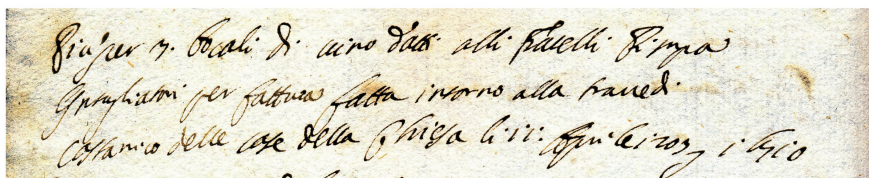 Più per n. bocali di vino dati alli fratelli Pippa
Intagliatori per fattura fatta intorno alla trave di
costanico delle case della Chiesa li 11: Aprile 1707